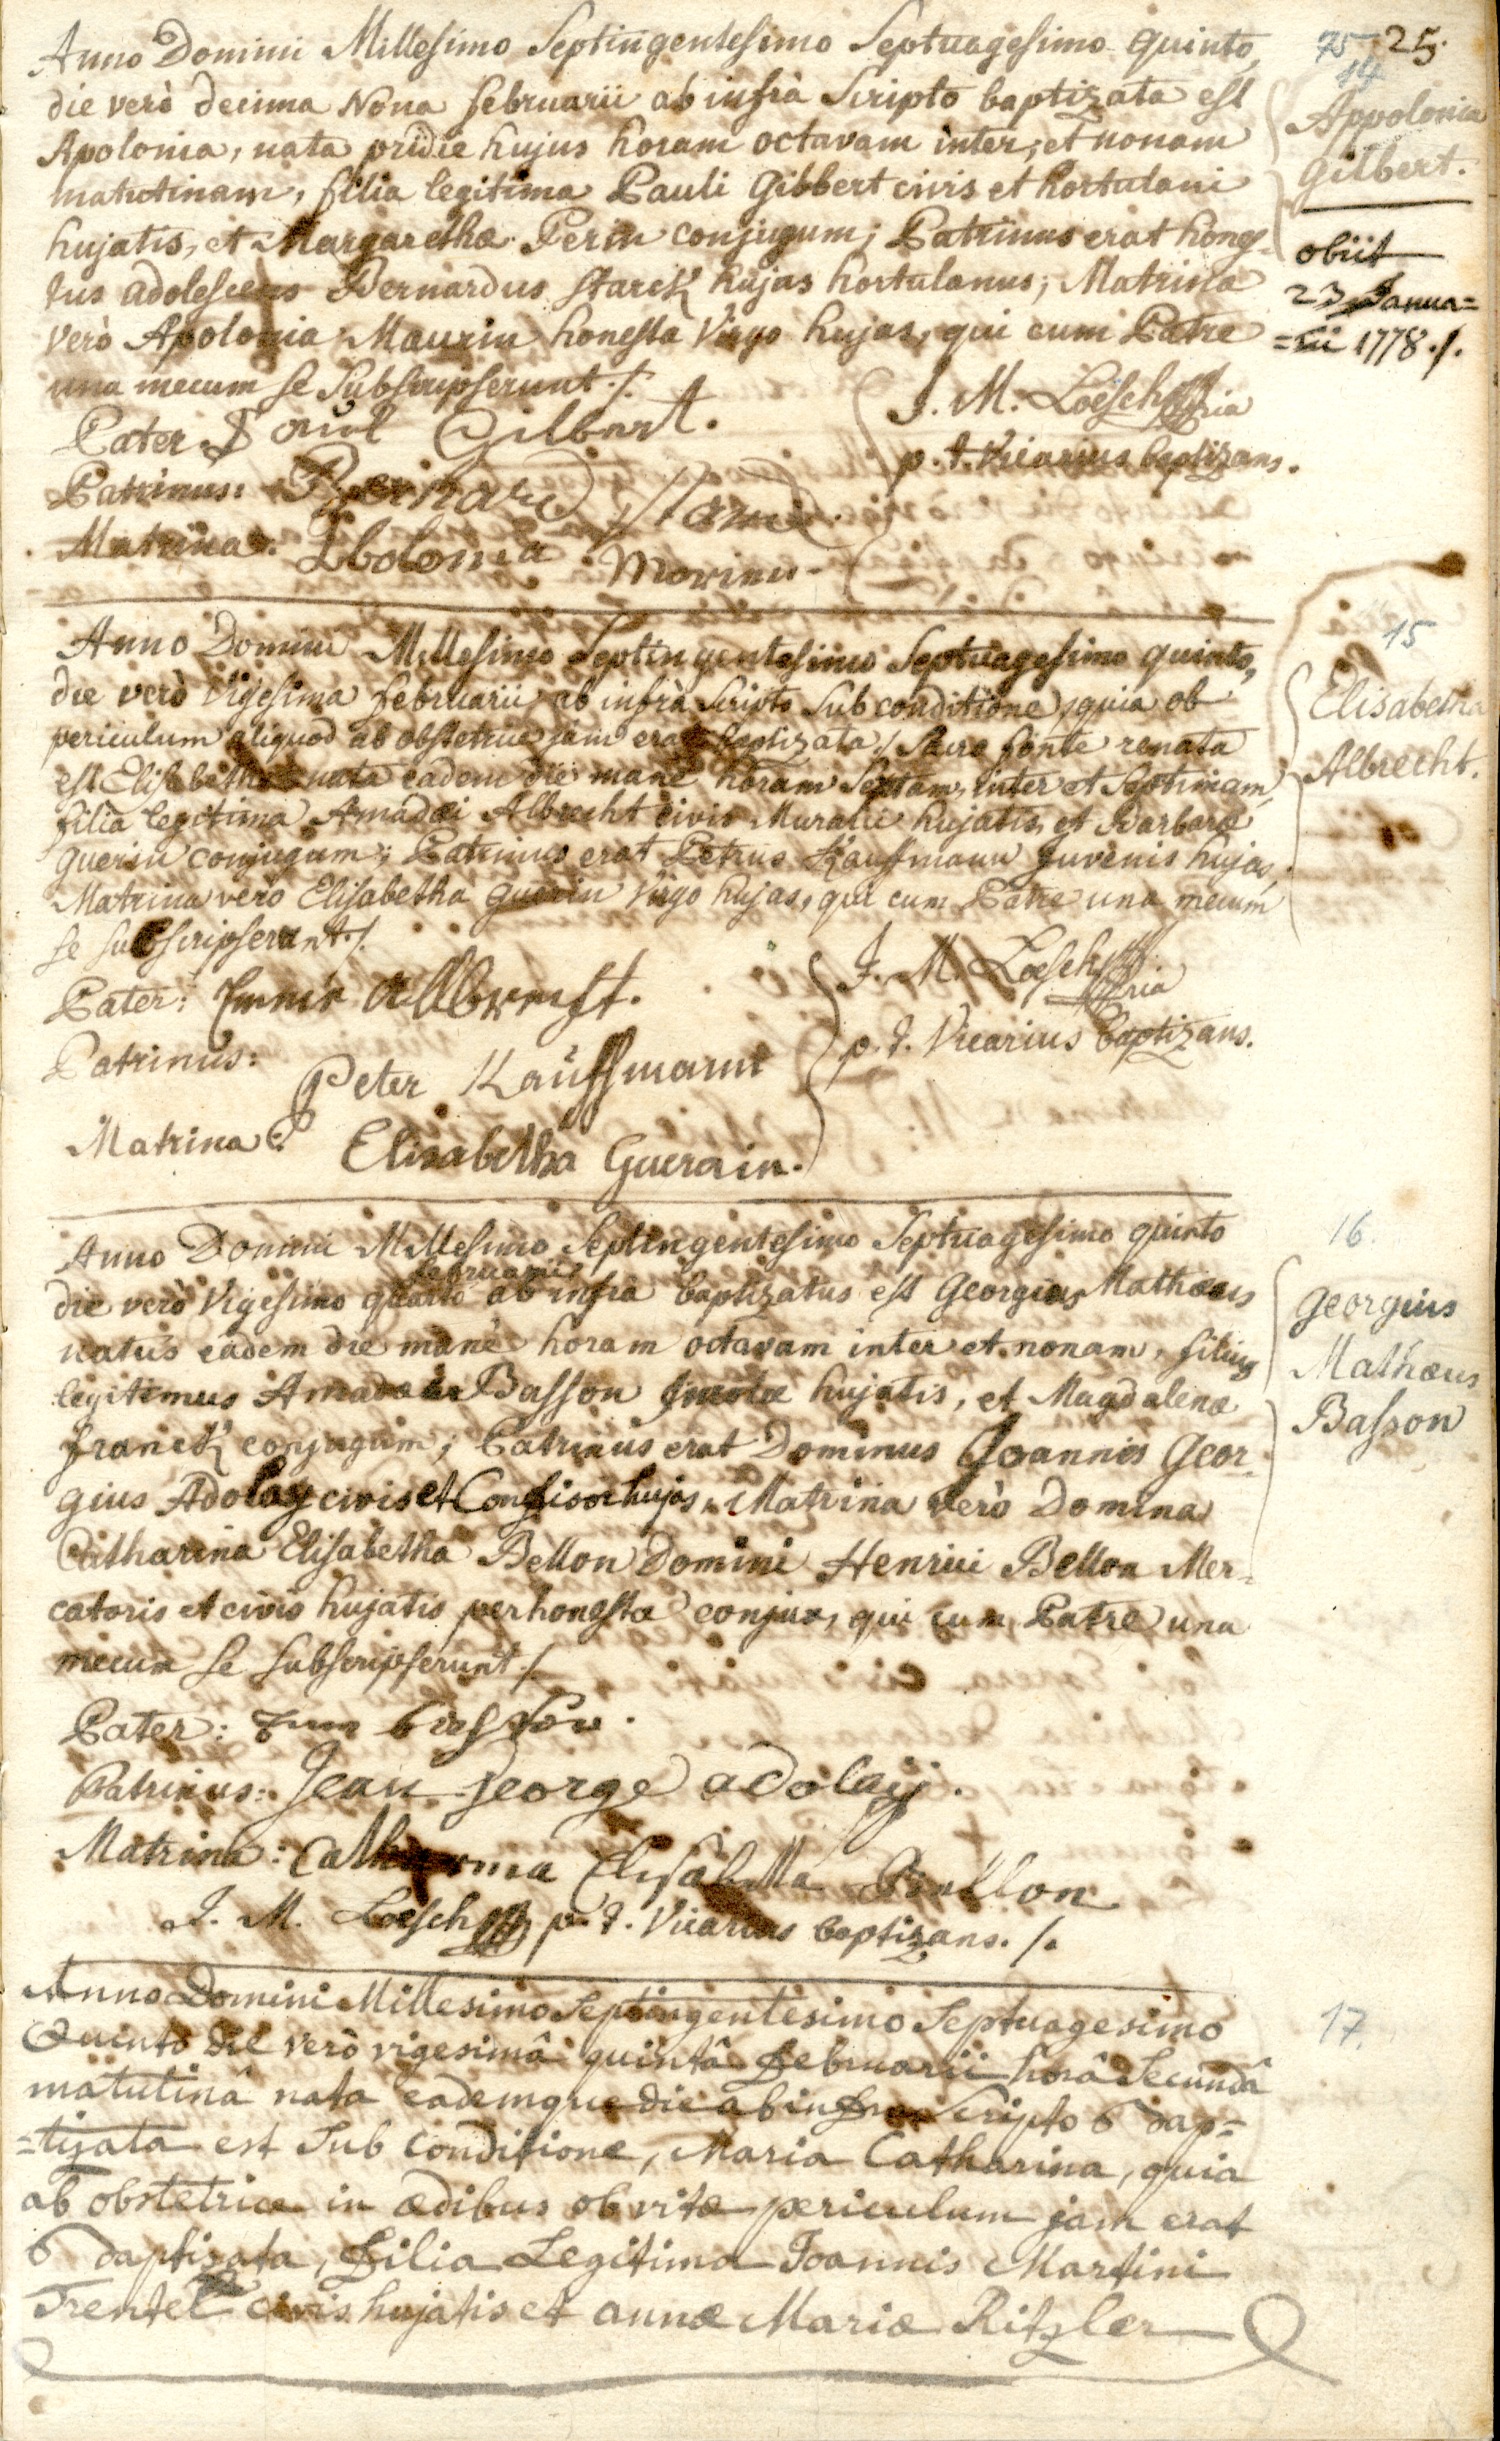 75 25.
14
Anno Domini Millesimo Septingentesimo Septuagesimo quinto,
die verò decima Nona februarii ab infrà Scripto baptizata est
Apolonia, nata pridie hujus horam octavam inter, et nonam
matutinam, filia legitima Pauli Gibbert civis et hortulani
hujatis, et Margarethæ Perin conjugum; Patrinus erat hones-
tus adolescens Bernardus Starck hujas hortulanus; Matrina
verò Apolonia Maurin honesta Virgo hujas, qui cum Patre
una mecum se Subscripserunt./.
Appolonia
Gilbert.
obiit
23 Janua=
=rii 1778./.
Pater Paul Gilbert.
Patrinus: Bernard
Matrina: Abolonia Morinn
J. M. Loesch
p. t. Vicarius baptizans.
15
Anno Domini Millesimo Septingentesimo Septuagesimo quinto,
die verò Vigesima februarii ab infrà Scripto Sub conditione, quia ob
periculum aliquod ab obstetrice jam erat baptizata / Sacro fonte renata
est Elisabetha nata eadem die mane horam Sextam inter et Septimam,
filia legitima Amadæi Albrecht civis Murarii hujatis et Barbaræ
Guerin conjugum; Patrinus erat Petrus Kauffmann Juvenis hujas,
Matrina verò Elisabetha guerin Virgo hujas, qui cum Patre una mecum
se subscripserunt./.
Elisabetha
Albrecht.
Pater: Albrecht.
Patrinus: Peter Kauffmann
Matrina: Elisabetha Guerain.
J. M. Loesch
p. t. Vicarius baptizans.
16.
Anno Domini Millesimo Septingentesimo Septuagesimo quinto
februarii
die verò Vigesimo quarto ab infrà baptizatus est Georgius Mathæus
natus eadem die manè horam octavam inter et nonam, filius
legitimus Amadæi Basson Incolæ hujatis, et Magdalenæ
franck conjugum; Patrinus erat Dominus Joannes Geor-
gius Adolay civis et hujas, Matrina verò Domina
Catharina Elisabetha Bellon Domini Henrici Bellon Mer-
catoris et civis hujatis perhonesta conjux, qui cum Patre una
mecum se subscripserunt./
Georgius
Mathæus
Basson
Pater: basson.
Patrinus: Jean george adolay.
Matrina: Catharina Elisabetha Bellon
J. M. Loesch p. t. Vicarius baptizans./.
17.
Anno Domini Millesimo Septingentesimo Septuagesimo
Quinto die verò vigesimâ quintâ Februarii horâ Secundâ
matutinâ nata eademque die ab infra Scripto bap=
=tizata est Sub Conditione, Maria Catharina, quia
ab obstetrice in ædibus ob vitæ periculum jam erat
baptizata, Filia Legitima Joannis Martini
Trentel civis hujatis et annæ Mariæ Ritzler